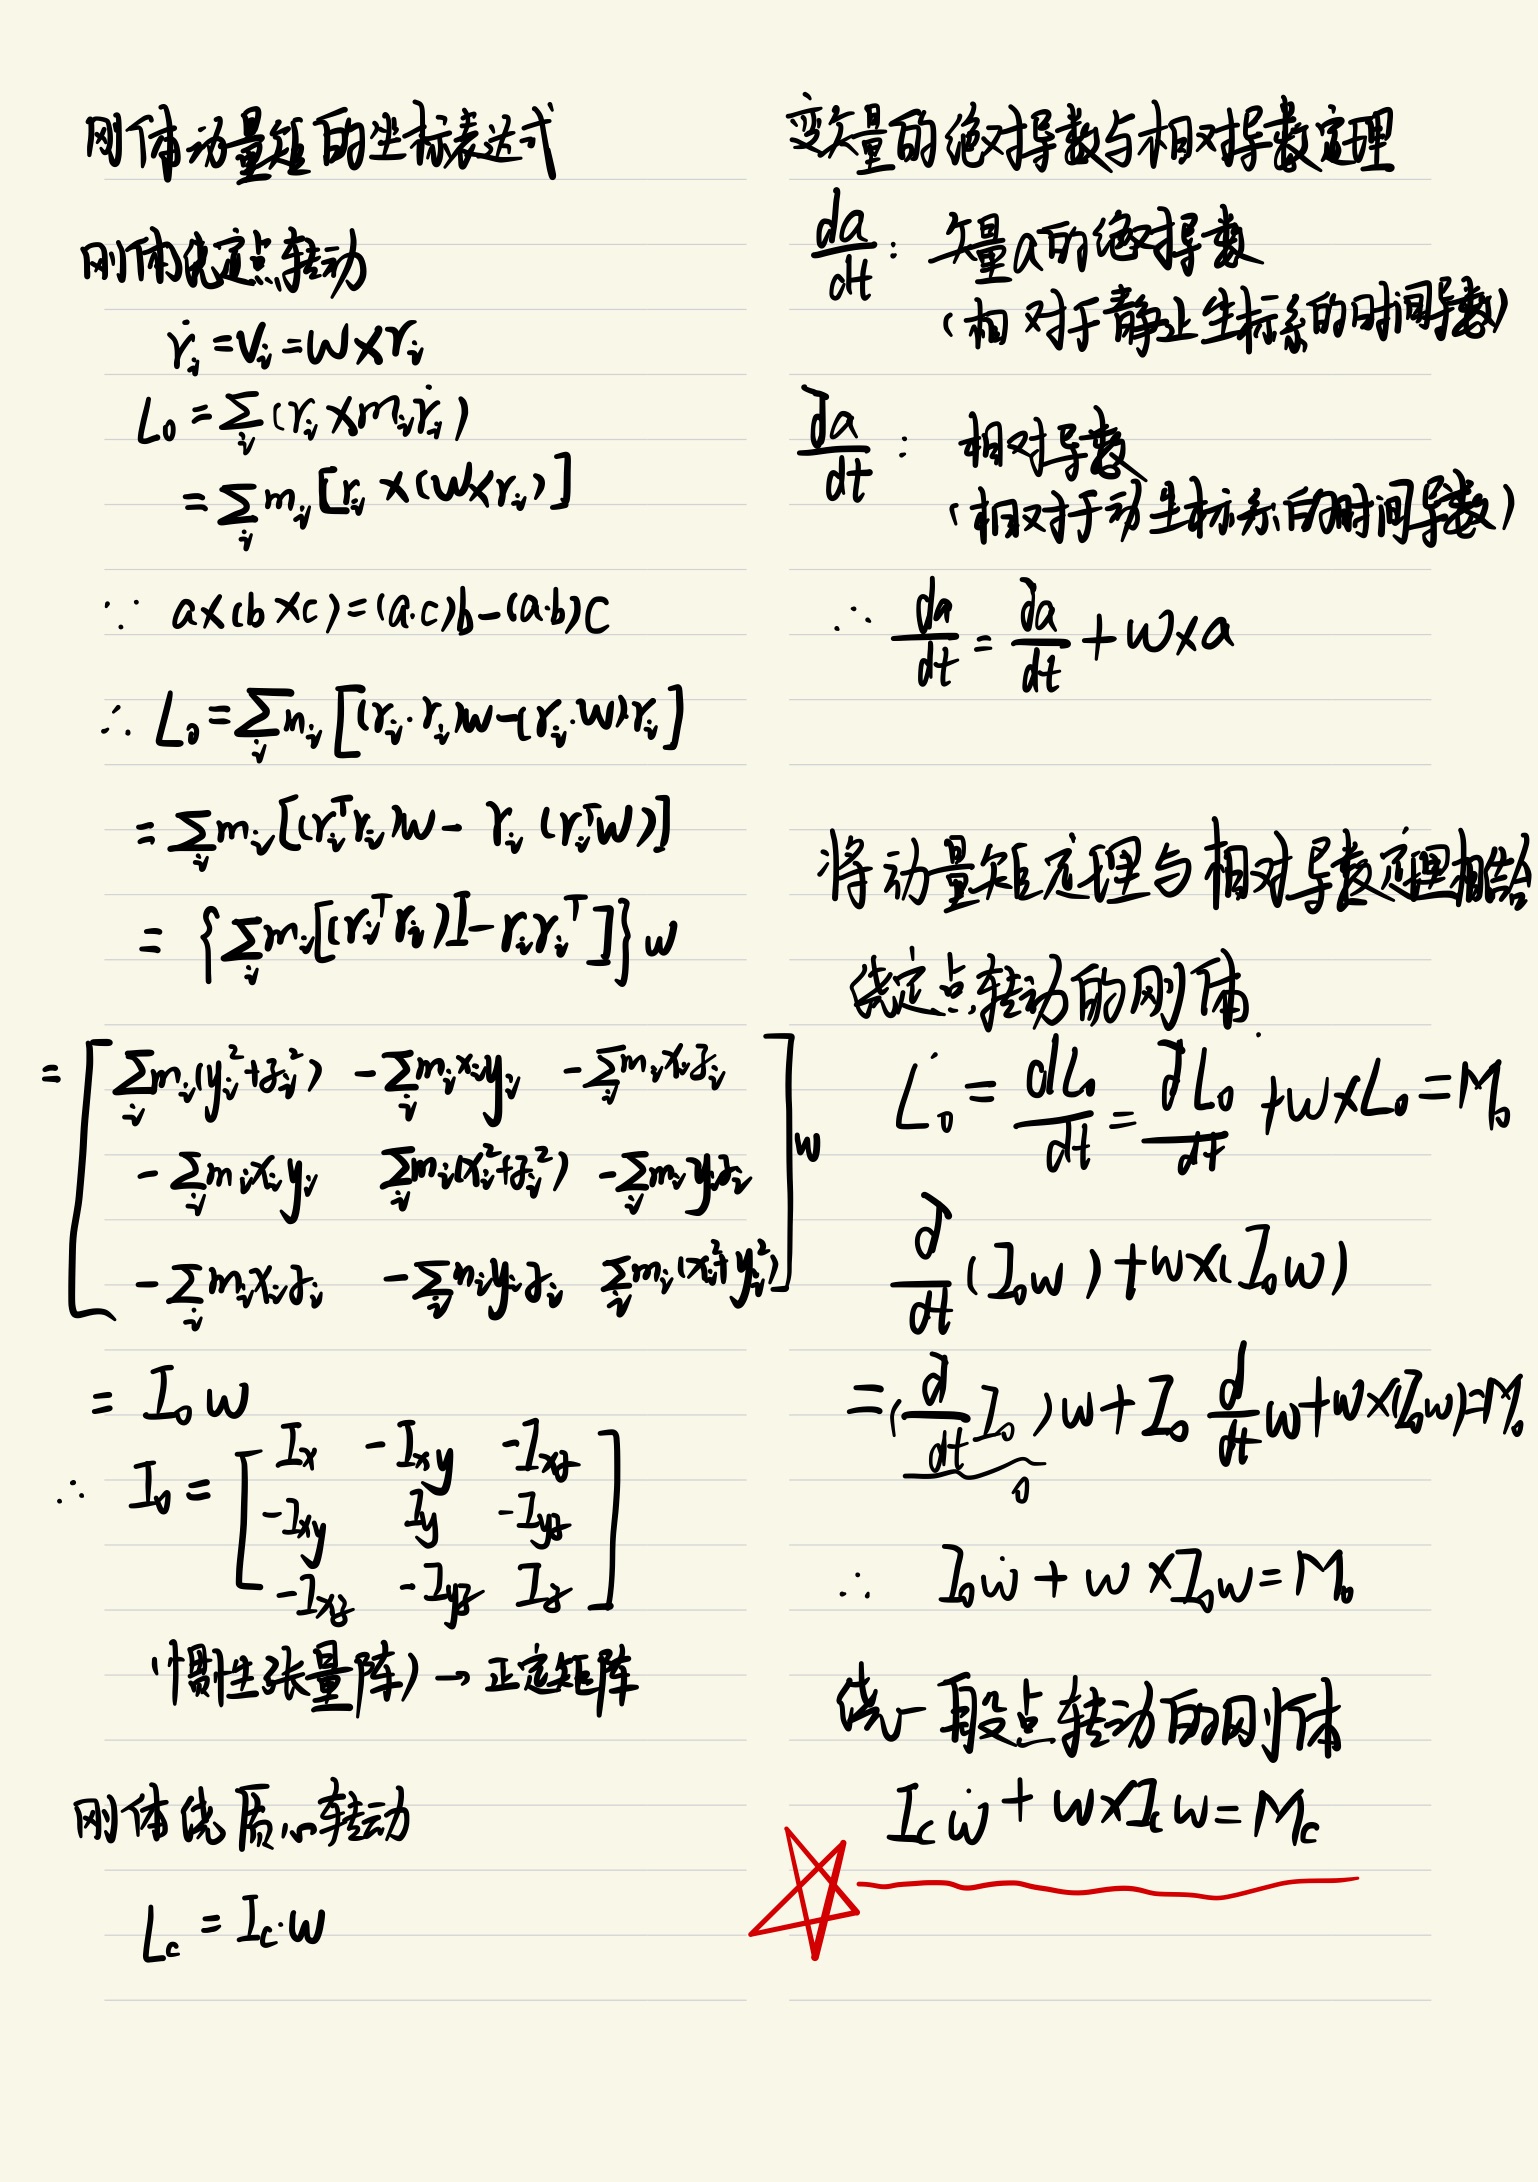 刚体动量矩的坐标表达式
刚体绕定点转动
ṙᵢ = Vᵢ = w×rᵢ
L₀ = ∑ᵢ (rᵢ × mᵢṙᵢ)
= ∑ᵢ mᵢ [rᵢ × (w×rᵢ)]
∵ a×(b×c) = (a·c)b − (a·b)c
∴ L₀ = ∑ᵢ mᵢ [(rᵢ·rᵢ)w − (rᵢ·w)rᵢ]
= ∑ᵢ mᵢ [(rᵢᵀrᵢ)w − rᵢ(rᵢᵀw)]
= {∑ᵢ mᵢ [(rᵢᵀrᵢ)I − rᵢrᵢᵀ]} w
= [ ∑ᵢ mᵢ(yᵢ²+zᵢ²) −∑ᵢ mᵢxᵢyᵢ −∑ᵢ mᵢxᵢzᵢ
−∑ᵢ mᵢxᵢyᵢ ∑ᵢ mᵢ(xᵢ²+zᵢ²) −∑ᵢ mᵢyᵢzᵢ
−∑ᵢ mᵢxᵢzᵢ −∑ᵢ mᵢyᵢzᵢ ∑ᵢ mᵢ(xᵢ²+yᵢ²) ] w
= I₀ w
∴ I₀ = [ Ix −Ixy −Ixz
−Ixy Iy −Iyz
−Ixz −Iyz Iz ]
(惯性张量阵) → 正定矩阵
刚体绕质心转动
Lc = Ic·w
变矢量的绝对导数与相对导数定理
da/dt : 矢量a的绝对导数
(相对于静止坐标系的时间导数)
∂a/dt : 相对导数
(相对于动坐标系的时间导数)
∴ da/dt = ∂a/dt + w×a
将动量矩定理与相对导数定理相结合
绕定点转动的刚体
L̇₀ = dL₀/dt = ∂L₀/dt + w×L₀ = M₀
∂/dt (I₀w) + w×(I₀w)
= (∂/dt I₀)w + I₀ d/dt w + w×(I₀w) = M₀
0
∴ I₀ẇ + w×I₀w = M₀
绕一般点转动的刚体
Icẇ + w×Icw = Mc